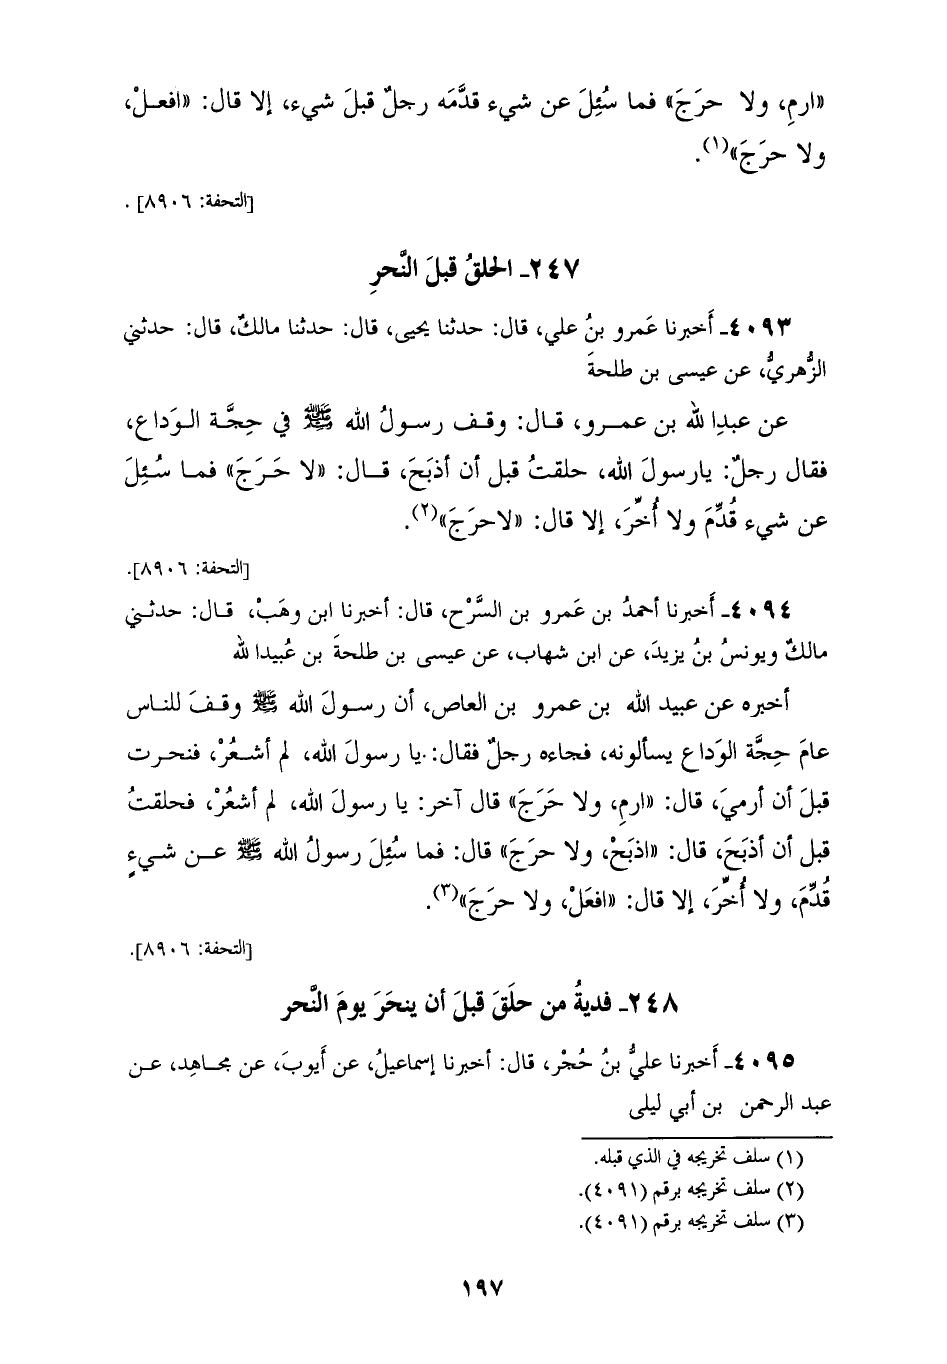 «ارمِ، ولا حرَجَ» فما سُئِلَ عن شيء قدَّمَه رجلٌ قبلَ شيء، إلا قال: «افعلْ،
ولا حرَجَ»(١).
[التحفة: ٨٩٠٦] .
٢٤٧ـ الحلقُ قبلَ النَّحرِ
٤٠٩٣ـ أَخبرنا عَمرو بنُ علي، قال: حدثنا يحيى، قال: حدثنا مالكٌ، قال: حدثني
الزُّهريُّ، عن عيسى بن طلحةَ
عن عبدِا لله بن عمرو، قال: وقف رسولُ الله ﷺ في حِجَّة الوَداع،
فقال رجلٌ: يارسولَ الله، حلقتُ قبل أن أذبَحَ، قال: «لا حَرَجَ» فما سُئِلَ
عن شيء قُدِّمَ ولا أُخِّرَ، إلا قال: «لاحرَجَ»(٢).
[التحفة: ٨٩٠٦].
٤٠٩٤ـ أَخبرنا أحمدُ بن عَمرو بن السَّرْح، قال: أخبرنا ابن وهَبْ، قال: حدثني
مالكٌ ويونسُ بنُ يزيدَ، عن ابن شهاب، عن عيسى بن طلحةَ بن عُبيدا لله
أخبره عن عبيد الله بن عمرو بن العاص، أن رسولَ الله ﷺ وقفَ للناس
عامَ حِجَّة الوَداع يسألونه، فجاءه رجلٌ فقال: يا رسولَ الله، لم أشعُرْ، فنحرت
قبلَ أن أرميَ، قال: «ارمِ، ولا حَرَجَ» قال آخر: يا رسولَ الله، لم أشعُرْ، فحلقتُ
قبل أن أذبَحَ، قال: «اذبَحْ، ولا حرَجَ» قال: فما سُئِلَ رسولُ الله ﷺ عن شيءٍ
قُدِّمَ، ولا أُخِّرَ، إلا قال: «افعَلْ، ولا حرَجَ»(٣).
[التحفة: ٨٩٠٦].
٢٤٨ـ فديةُ من حلَقَ قبلَ أن ينحَرَ يومَ النَّحر
٤٠٩٥ـ أَخبرنا عليُّ بنُ حُجْر، قال: أخبرنا إسماعيلُ، عن أَيوبَ، عن مجاهِد، عن
عبد الرحمن بن أبي ليلى
(١) سلف تخريجه في الذي قبله.
(٢) سلف تخريجه برقم (٤٠٩١).
(٣) سلف تخريجه برقم (٤٠٩١).
١٩٧